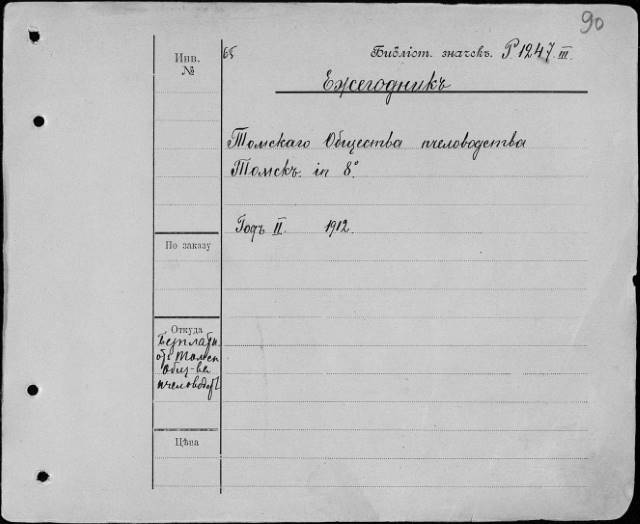 90
Инв.
№
65
Библіот. значекъ. P. 1247. III.
Ежегодникъ
Томскаго Общества пчеловодства
Томскъ. in 8°.
Годъ II. 1912.
По заказу
Откуда
от Томск
Общ-ва
пчеловод
Цѣна